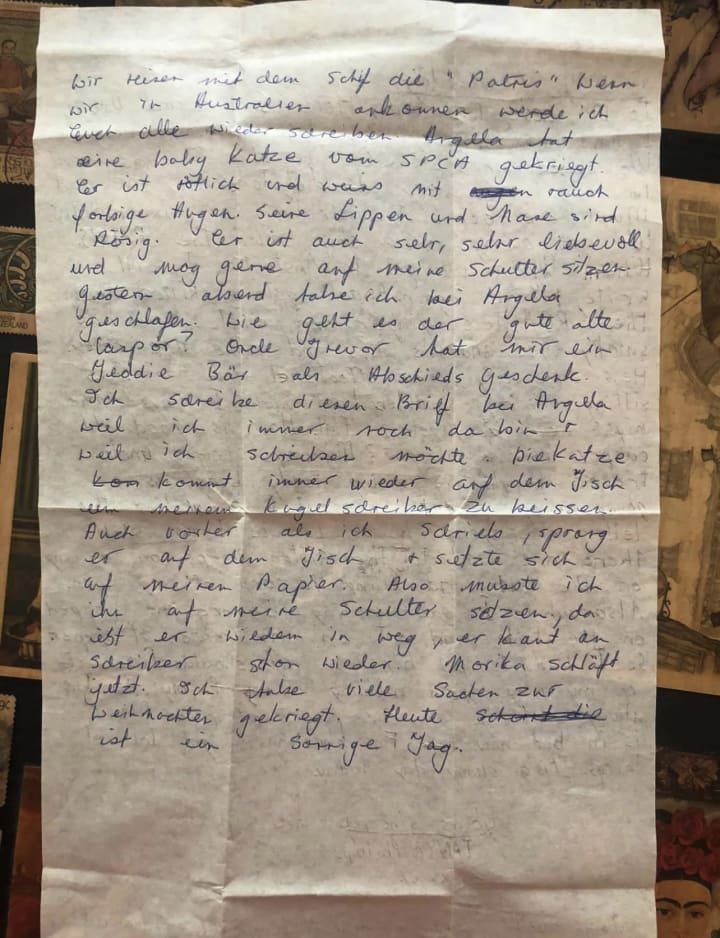 Wir reisen mit dem Schif die "Patris" Wenn
wir in Australien ankommen werde ich
Euch alle wieder schreiben. Angela hat
eine baby Katze vom SPCA gekriegt.
Er ist rötlich und weiss mit rauch
farbige Augen. Seine Lippen und Nase sind
Rosig. Er ist auch sehr, sehr liebevoll
und mag gerne auf meine Schulter sitzen
gestern abend habe ich bei Angela
geschlafen. Wie geht es der gute alte
Caspar? Onde Trevor hat mir ein
Teddie Bär als Abschieds geschenk.
Ich schreibe diesen Brief bei Angela
weil ich immer noch da bin +
weil ich schreiben möchte. Die Katze
kom kommt immer wieder auf dem Tisch
um meinem Kugelschreiber zu beissen.
Auch vorher als ich schrieb, sprang
er auf dem Tisch + setzte sich
auf meinen Papier. Also musste ich
ihn auf meine Schulter setzen, da
ist er wiedem in weg, er kaut an
schreiber schon wieder. Monika schläft
jetzt. Ich habe viele Sachen zur
Weihnachten gekriegt. Heute scheint die
ist ein sonnige Tag.
ZEALAND